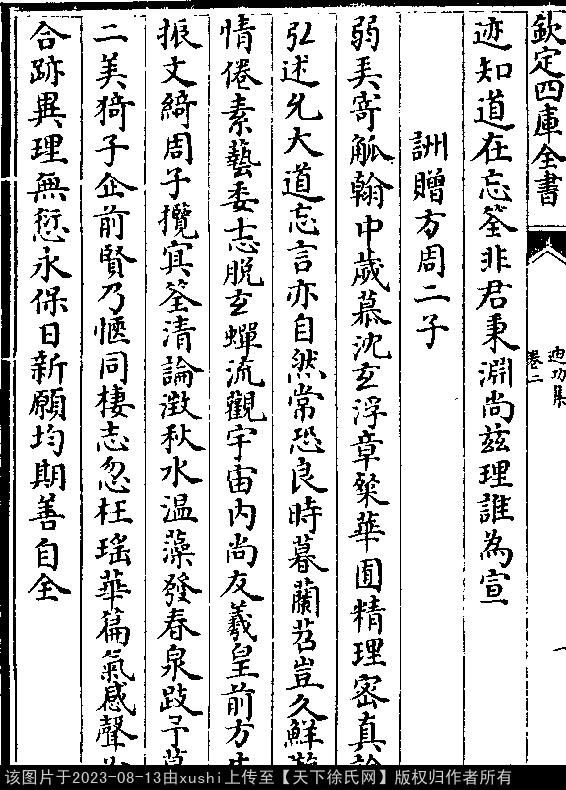 欽定四庫全書
迪功集
卷二
迹知道在忘筌非君秉淵尚兹理誰為宣
詶贈方周二子
弱美寄觚翰中歲慕沈玄浮章粲華圃精理密真
弘述允大道忘言亦自然常恐良時暮蘭苕豈久鮮
情倦素藝委志脫玄蟬流觀宇宙內尚友羲皇前方
振文綺周子攬冥筌清論澂秋水温藻發春泉跂予
二美猗子企前賢乃愜同棲志忽枉瑶華篇氣感聲
合跡異理無愆永保日新願均期善自全
该图片于2023-08-13由xushi上传至【天下徐氏网】版权归作者所有